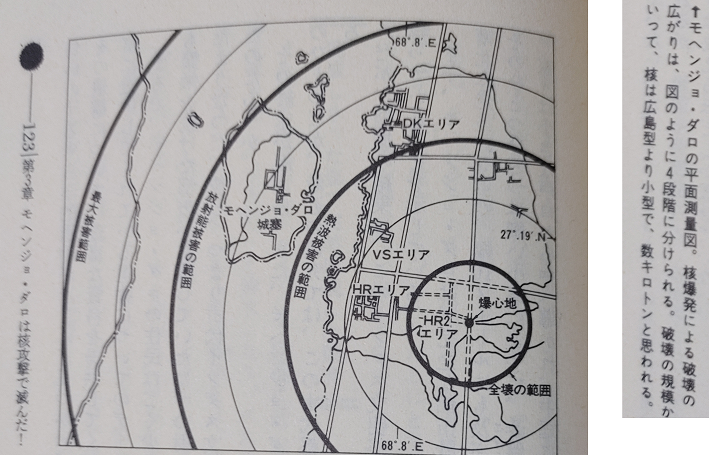 ↑モヘンジョ・ダロの平面測量図。核爆発による破壊の
広がりは、図のように4段階に分けられる。破壊の規模か
いって、核は広島型より小型で、数キロトンと思われる。
68°.8′.E
DKエリア
モヘンジョ・ダロ
城塞
27°.19′.N
VSエリア
HRエリア
爆心地
HR2
エリア
全壊の範囲
熱波被害の範囲
放射能被害の範囲
最大被害範囲
68°.8′.E
123 第3章 モヘンジョ・ダロは核攻撃で滅んだ!